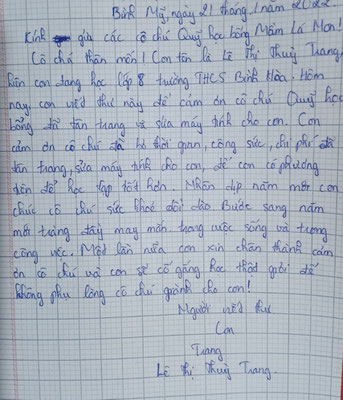 Bình Mỹ, ngày 21 tháng 1 năm 2022
Kính gửi các cô chú Quỹ học bổng Mầm Lá Non!
Cô chú thân mến! Con tên là Lê Thị Thuỳ Trang,
hiện con đang học lớp 8 trường THCS Bình Hòa. Hôm
nay, con viết thư này để cảm ơn cô chú Quỹ học
bổng đã tân trang và sửa máy tính cho con. Con
cảm ơn cô chú đã bỏ thời gian, công sức, chi phí để
tân trang, sửa máy tính cho con, để con có phương
tiện để học tập tốt hơn. Nhân dịp năm mới con
chúc cô chú sức khoẻ dồi dào. Bước sang năm
mới tràng đầy may mắn trong cuộc sống và trong
công việc. Một lần nữa con xin chân thành cảm
ơn cô chú và con sẽ cố gắng học thật giỏi để
không phụ lòng cô chú giành cho con!
Người viết thư
Con
Trang
Lê Thị Thuỳ Trang.